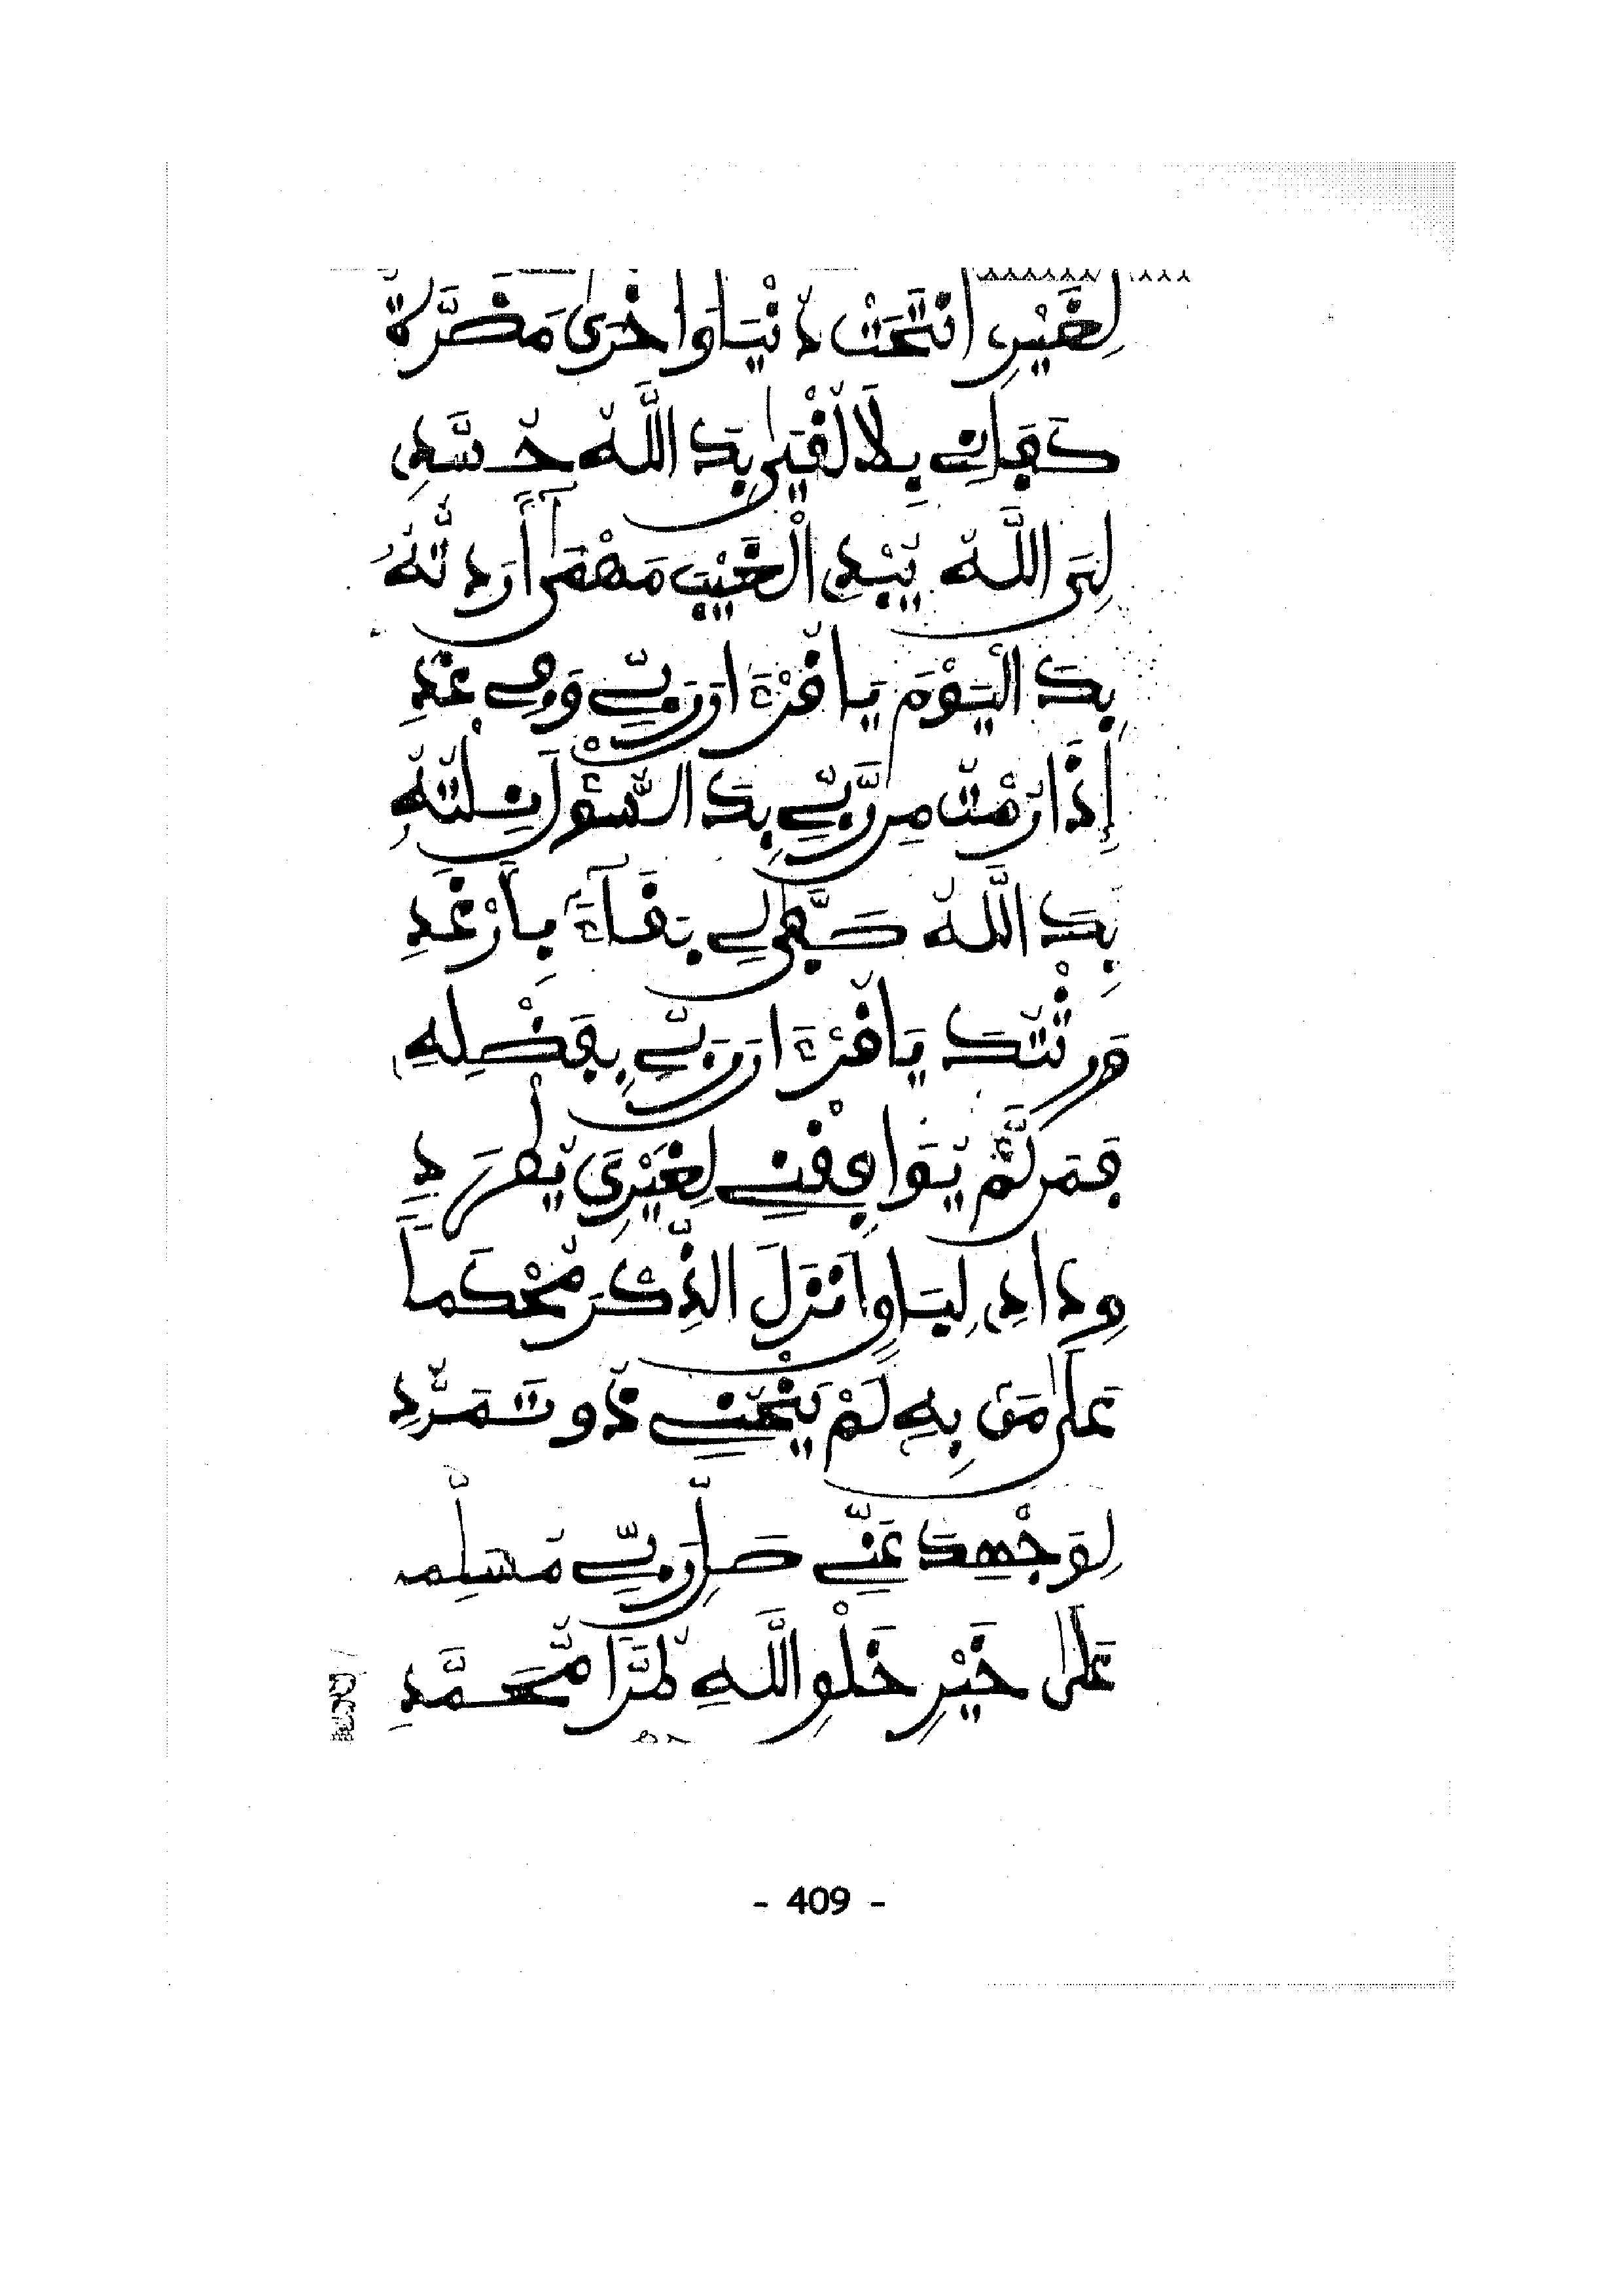 لِغَيْرِ انْتَحَتْ دُنْيَا وَاُخْرَىٰ مَضَرَّةٌ
كَفَانِي بِلَا لُقْيَىٰ بِكَ اللَّهُ حُسَّدِي
لِيَ اللَّهُ يُبْدِي الْغَيْبَ مَهْمَىٰ أَرَدتُّهُ
بِكَ الْيَوْمَ يَا قُرْءَانَ رَبِّي وَفِي غَدِ
إِذَا رُمْتُ مِن رَّبِّي بِكَ السُّؤْلَ نِلْتُهُ
بِكَ اللَّهُ كَفَّىٰ لِي بَقَاءً بِأَرْغَدِ
وَرِثْتُكَ يَا قُرْءَانَ رَبِّي بِفَضْلِهِ
فَمَن لَّمْ يُوَافِقْنِي لِغَيْرِي يُطْرَدِ
وِدَادِي لِيَا وٍ أَنْزَلَ الذِّكْرَ مُحْكَمًا
عَلَىٰ مَنْ بِهِ لَمْ يَنْحُنِي ذُو تَمَرُّدِ
لِوَجْهِكَ عَنِّي صَلِّ رَبِّي مُسَلِّمًا
عَلَىٰ خَيْرِ خَلْقِ اللَّهِ طُرًّا مُحَمَّدِ
- 409 -